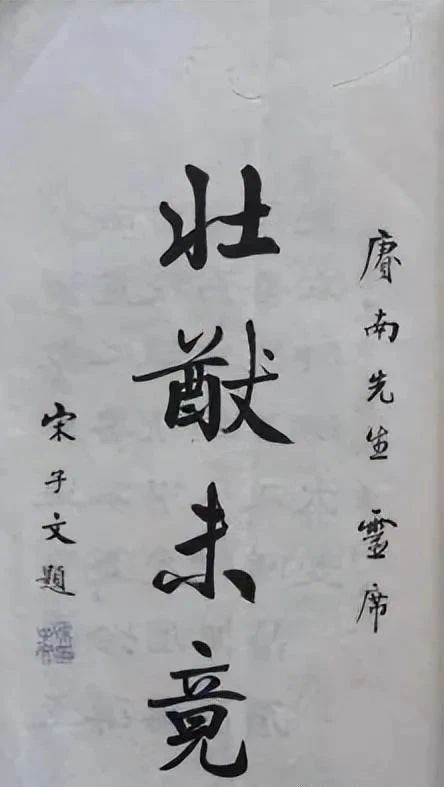 賡南先生靈席
壯猷未竟
宋子文題